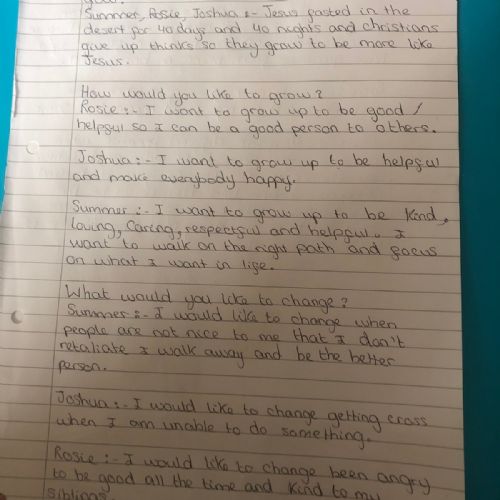 Summer, Rosie, Joshua :- Jesus fasted in the
desert for 40 days and 40 nights and christians
give up thinks so they grow to be more like
Jesus.
How would you like to grow?
Rosie :- I want to grow up to be good /
helpful so I can be a good person to others.
Joshua :- I want to grow up to be helpful
and make everybody happy.
Summer :- I want to grow up to be kind,
loving, caring, respectful and helpful. I
want to walk on the right path and focus
on what I want in life.
What would you like to change?
Summer :- I would like to change when
people are not nice to me that I don't
retaliate I walk away and be the better
person.
Joshua :- I would like to change getting cross
when I am unable to do something.
Rosie :- I would like to change been angry
to be good all the time and kind to my
siblings.